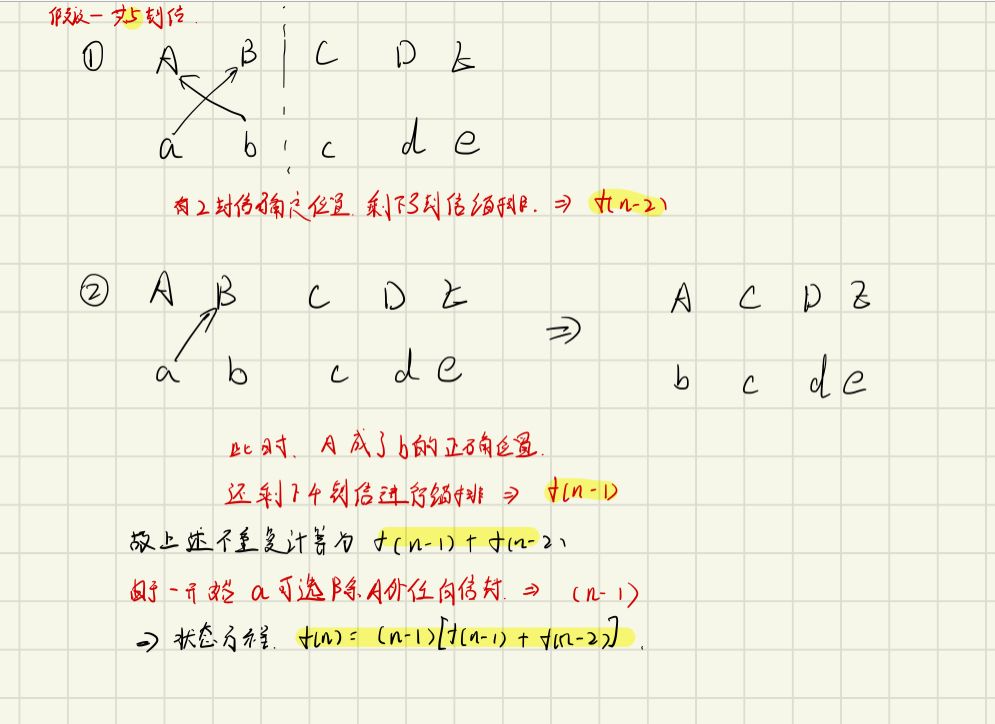 假设一共5封信.
① A B C D E
a b c d e
有2封信确定位置. 剩下3封信错排. ⇒ f(n-2)
② A B C D E ⇒ A C D E
a b c d e b c d e
此时、A成了b的正确位置.
还剩下4封信进行错排 ⇒ f(n-1)
故上述不重复计算为 f(n-1) + f(n-2)
由于一开始 a可选除A外任何信封. ⇒ (n-1)
⇒ 状态方程. f(n) = (n-1)[f(n-1) + f(n-2)].